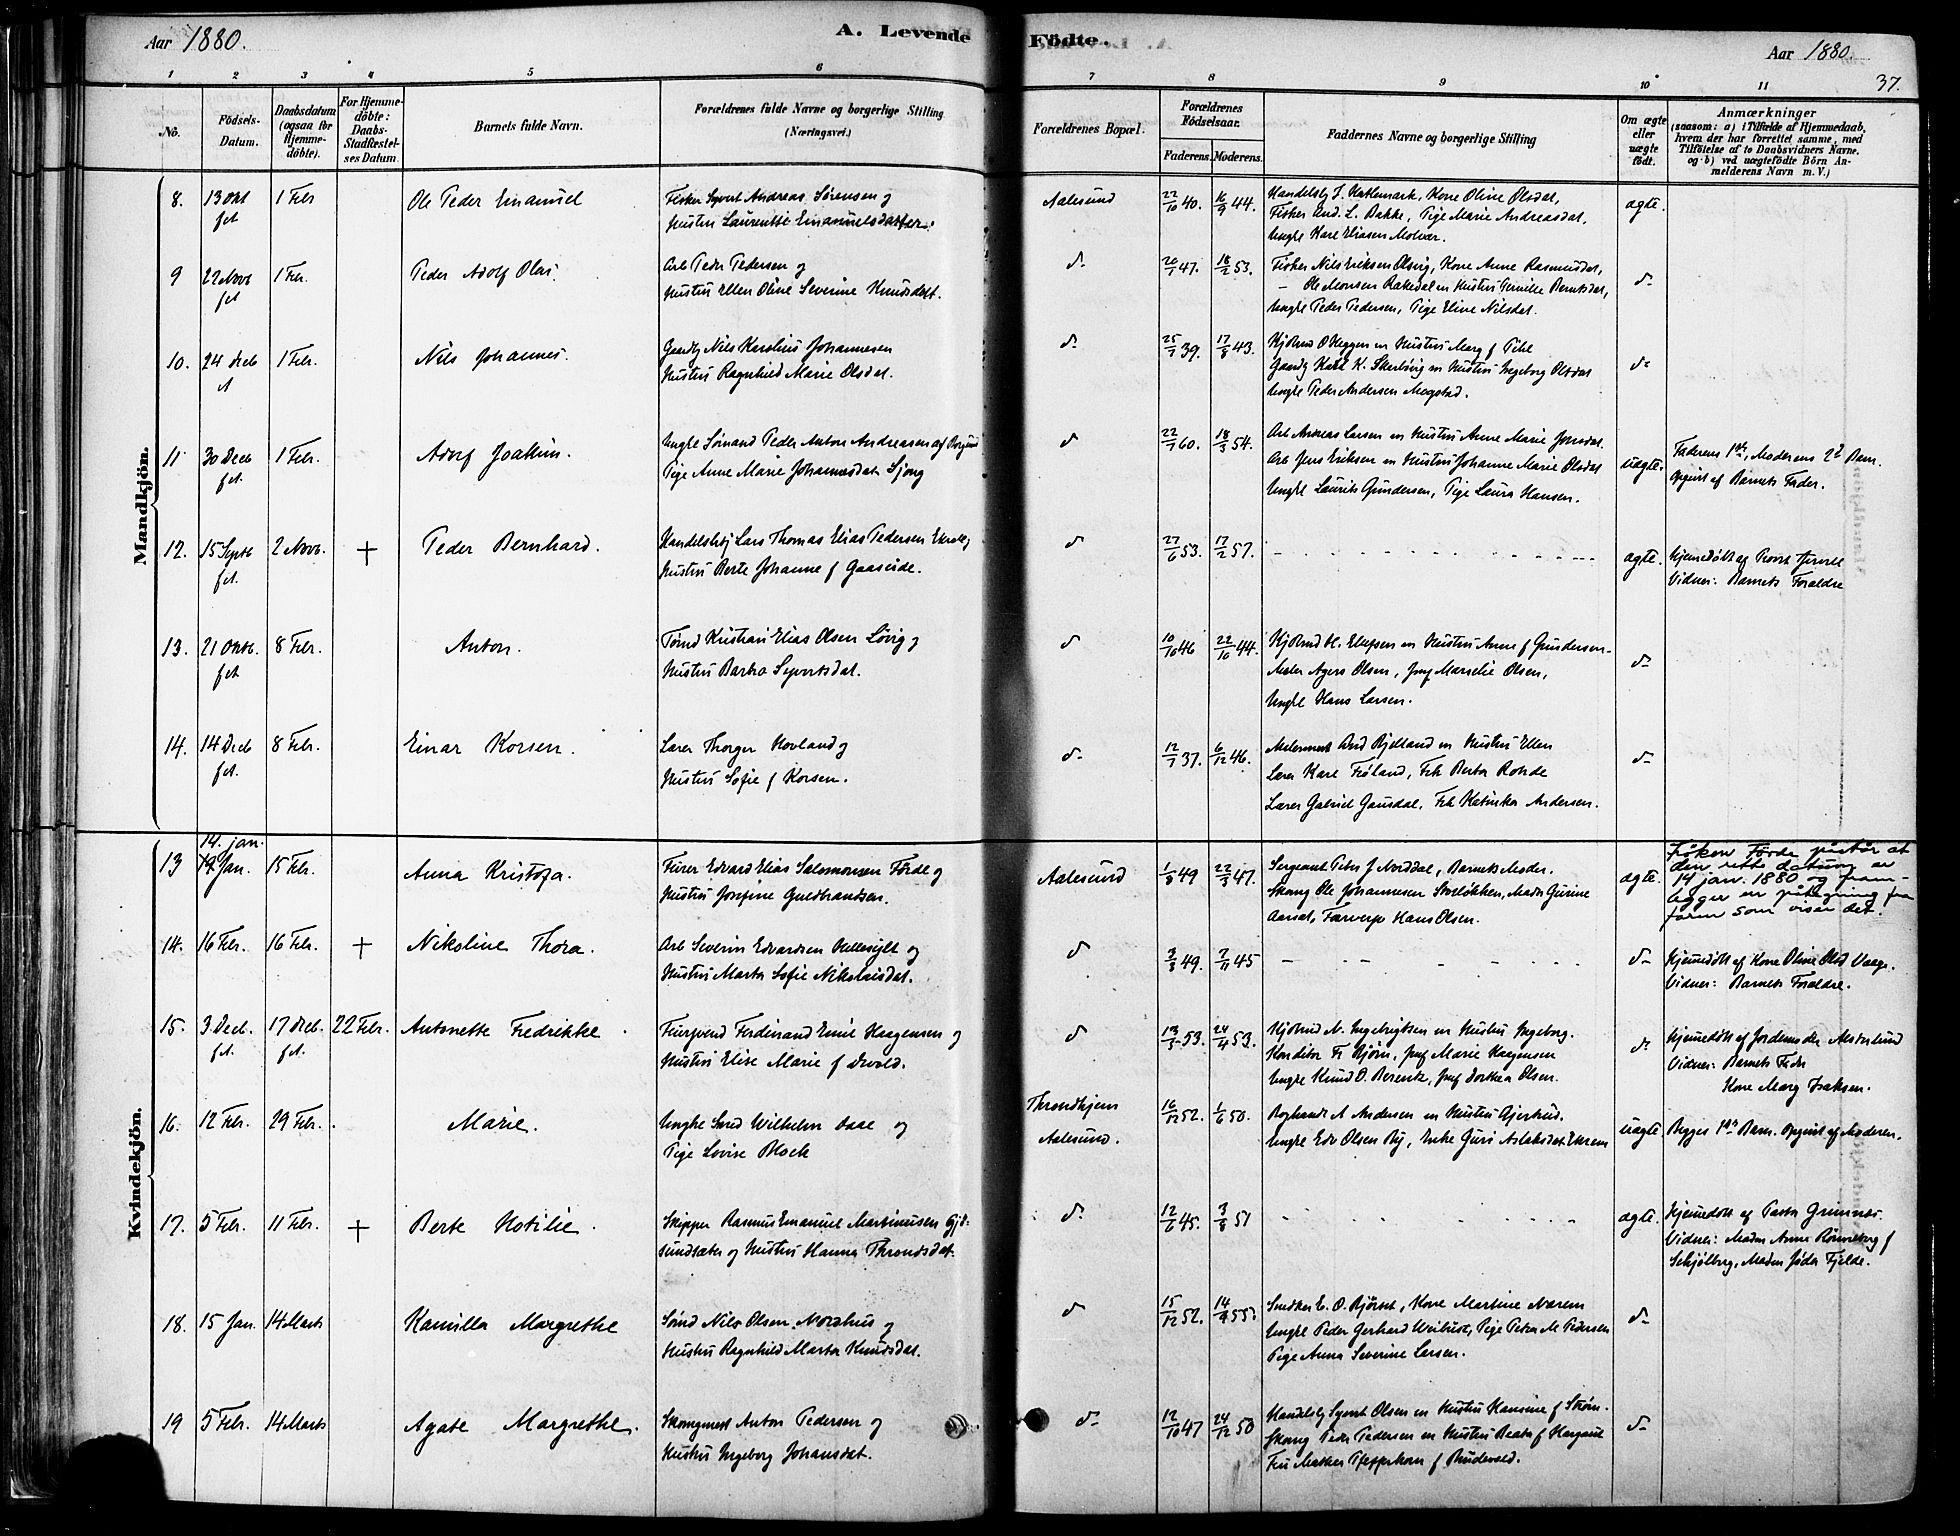 Aar 1880.
A. Levende Födte.
Aar 1880.
37.
1 2 3 4 5 6 7 8 9 10 11
No.
Födsels-Datum.
Daabsdatum (ogsaa for Hjemme-döbte).
For Hjemme-döbte: Daabs-Stadfæstel-ses Datum.
Barnets fulde Navn.
Forældrenes fulde Navne og borgerlige Stilling (Næringsvei.)
Forældrenes Bopæl.
Forældrenes Födselsaar.
Faderens. Moderens.
Faddernes Navne og borgerlige Stilling
Om ægte eller uægte födt.
Anmærkninger
(saasom: a) i Tilfælde af Hjemmedaab,
hvem der har forrettet samme, med
Tilföielse af to Daabsvidners Navne.
og b) ved uægtefödte Börn An-
melderens Navn m. V.)
Mandkjön.
8. 13 Okt fA 1 Febr Ole Peder Emanuel
Fisker Syvert Andreas Sørensen og
Hustru Laurentse Emanuelsdatter.
Aalesund 22/10 40. 16/9 44.
Fisker And. L. Bakke, Pige Marie Andreasdat,
Ungkl Karl Eliasen Molvær.
ægte.
9 22 Novb fA 1 Febr. Peder Adolf Olai.
Arb Peder Pedersen og
Hustru Ellen Oline Severine Knudsdatt.
d- 20/1 47. 18/2 53.
Fisker Nils Eriksen Olsvig, Kone Anne Rasmusdat,
Ungkl Peder Pedersen, Pige Eline Nilsdat.
d-
10. 24 Decb A 1 Febr. Nils Johannes.
Gaardbr Nils Karolius Johannesen
Hustru Ragnhild Marie Olsdat.
d- 25/7 39. 17/8 43.
Ungkl Peder Andersen Mogstad.
d-
11 30 Decb fA. 1 Febr. Adolf Joakim.
Ungkl Sømand Peder Anton Andreasen af Borgund
Pige Anne Marie Johannesdat Sjong
d 22/7 60. 18/3 54.
Arb Andreas Larsen en Hustru Anne Marie Jonsdat.
Arb Jens Eriksen en Hustru Johanne Marie Olsdat
Ungkl Laurits Gundersen, Pige Laura Hansen.
uægte.
Faderens 1ste, Moderens 2d Barn.
Opgivet af Barnets Fader.
12. 15 Septb fA. 2 Novb. † Peder Bernhard.
Handelsbtj Lars Thomas Elias Pedersen
Hustru Berte Johanne f Gaaseide.
d 27/6 53. 17/2 57.
ægte.
Vidner: Barnets Forældre
13. 21 Oktb. fA 8 Febr. Anton.
Tømd Kristian Elias Olsen Løvig og
Hustru Barba Syvertsdat.
d 10/10 46 22/10 44.
Maler Agers Olsen, Jmf Marselie Olsen,
Ungkl Hans Larsen.
d-
14. 14 Decb fA. 8 Febr. Einar Korsen.
Lærer Thorger Hovland og
Hustru Sofie f Korsen.
d- 12/7 37. 6/12 46.
Lærer Karl Frøland, Frk Berta Rohde
Lærer Gabriel Gausdal, Frk Katinka Andersen.
d-
Kvindekjön.
14. jan.
13 Jan. 15 Febr. Anna Kristofa.
Furer Edvard Elias Salomonsen Førde og
Hustru Josefine Guldbrandsen.
Aalesund 1/8 49 22/3 47.
Sergeant Peter J Norddal, Barnets Moder.
Skomg Ole Johannesen Storløkken, Madm Gurine
Aarsæt, Farversv Hans Olsen.
ægte.
Frøken Førde påstår at
den rette datum er
14 jan. 1880 og frem-
legger en påtegning fra
form som viser det.
14. 16 Febr. 16 Febr. † Nikoline Thora.
Arb Severin Edvardsen Hellesylt og
Hustru Marta Sofie Nikolaisdat.
d 3/3 49. 7/11 45
d-
Hjemmedøbt af Kone Oline Olsd Vaage.
Vidner: Barnets Forældre.
15. 3 Decb. fA. 17 Decb. fA. 22 Febr. Antonette Fredrikke
Ferdinand Emil Haagensen og
Hustru Elise Marie f Devold.
d 13/5 53. 24/4 53.
Hjblmd N. Ingebrigtsen en Hustru Ingeborg.
Konditor Fr Bjørn, Jmf Marie Haagensen
Ungkl Knud O. Berentz, Jmf Dorthea Olsen.
d-
Hjemmedøbt af Jordemoder Aksterlund
Vidner: Barnets Fader
Kone Marg Isaksen.
16. 12 Febr. 29 Febr. Marie.
Ungkl Smed Wilhelm Aase og
Pige Lovise Block
Throndhjem
Aalesund.
16/12 52. 1/6 50.
Boghandl A Andersen en Hustru Gjertrud.
Ungkl Edv Olsen By, Enke Guri Aslaksdat Ekrem
uægte
Begges 1ste Barn. Opgivet af Moderen.
17. 5 Febr. 11 Febr. † Berte Hotilie.
Skipper Rasmus Emanuel Martinusen Gjø-
sundsæter og Hustru Hanna Throndsdat.
d- 12/6 45. 3/8 51
ægte.
Hjemmedøbt af Pastor Grimnes.
Vidner: Madm Anna Rønneberg f
Schjølberg, Madm Jøda Fjelde.
18. 15 Jan. 14 Marts Kamilla Margrethe
Sømd Nils Olsen Nordhus og
Hustru Ragnhild Marta Knudsdat.
d 15/12 52. 14/4 55.
Snedker E. O. Bjørset, Kone Martine Nærem
Ungkl Peder Gerhard Weibust, Pige Petra M Pedersen
Pige Anna Severine Larsen.
d-
19 5 Febr. 14 Marts Agate Margrethe.
Skomgmest Anton Pedersen og
Hustru Ingeborg Johansdat.
d- 12/10 47 24/12 50
Handelsbtj Syvert Olsen en Hustru Hansine f Strøm.
Skomg Peder Pedersen en Hustru Beate f Hargaut
d-